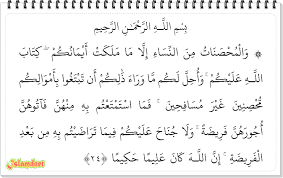 بِسْمِ اللَّهِ الرَّحْمَٰنِ الرَّحِيمِ
۞ وَالْمُحْصَنَاتُ مِنَ النِّسَاءِ إِلَّا مَا مَلَكَتْ أَيْمَانُكُمْ ۖ كِتَابَ
اللَّهِ عَلَيْكُمْ ۚ وَأُحِلَّ لَكُم مَّا وَرَاءَ ذَٰلِكُمْ أَن تَبْتَغُوا بِأَمْوَالِكُم
مُّحْصِنِينَ غَيْرَ مُسَافِحِينَ ۚ فَمَا اسْتَمْتَعْتُم بِهِ مِنْهُنَّ فَآتُوهُنَّ
أُجُورَهُنَّ فَرِيضَةً ۚ وَلَا جُنَاحَ عَلَيْكُمْ فِيمَا تَرَاضَيْتُم بِهِ مِن بَعْدِ
الْفَرِيضَةِ ۚ إِنَّ اللَّهَ كَانَ عَلِيمًا حَكِيمًا ﴿٢٤﴾